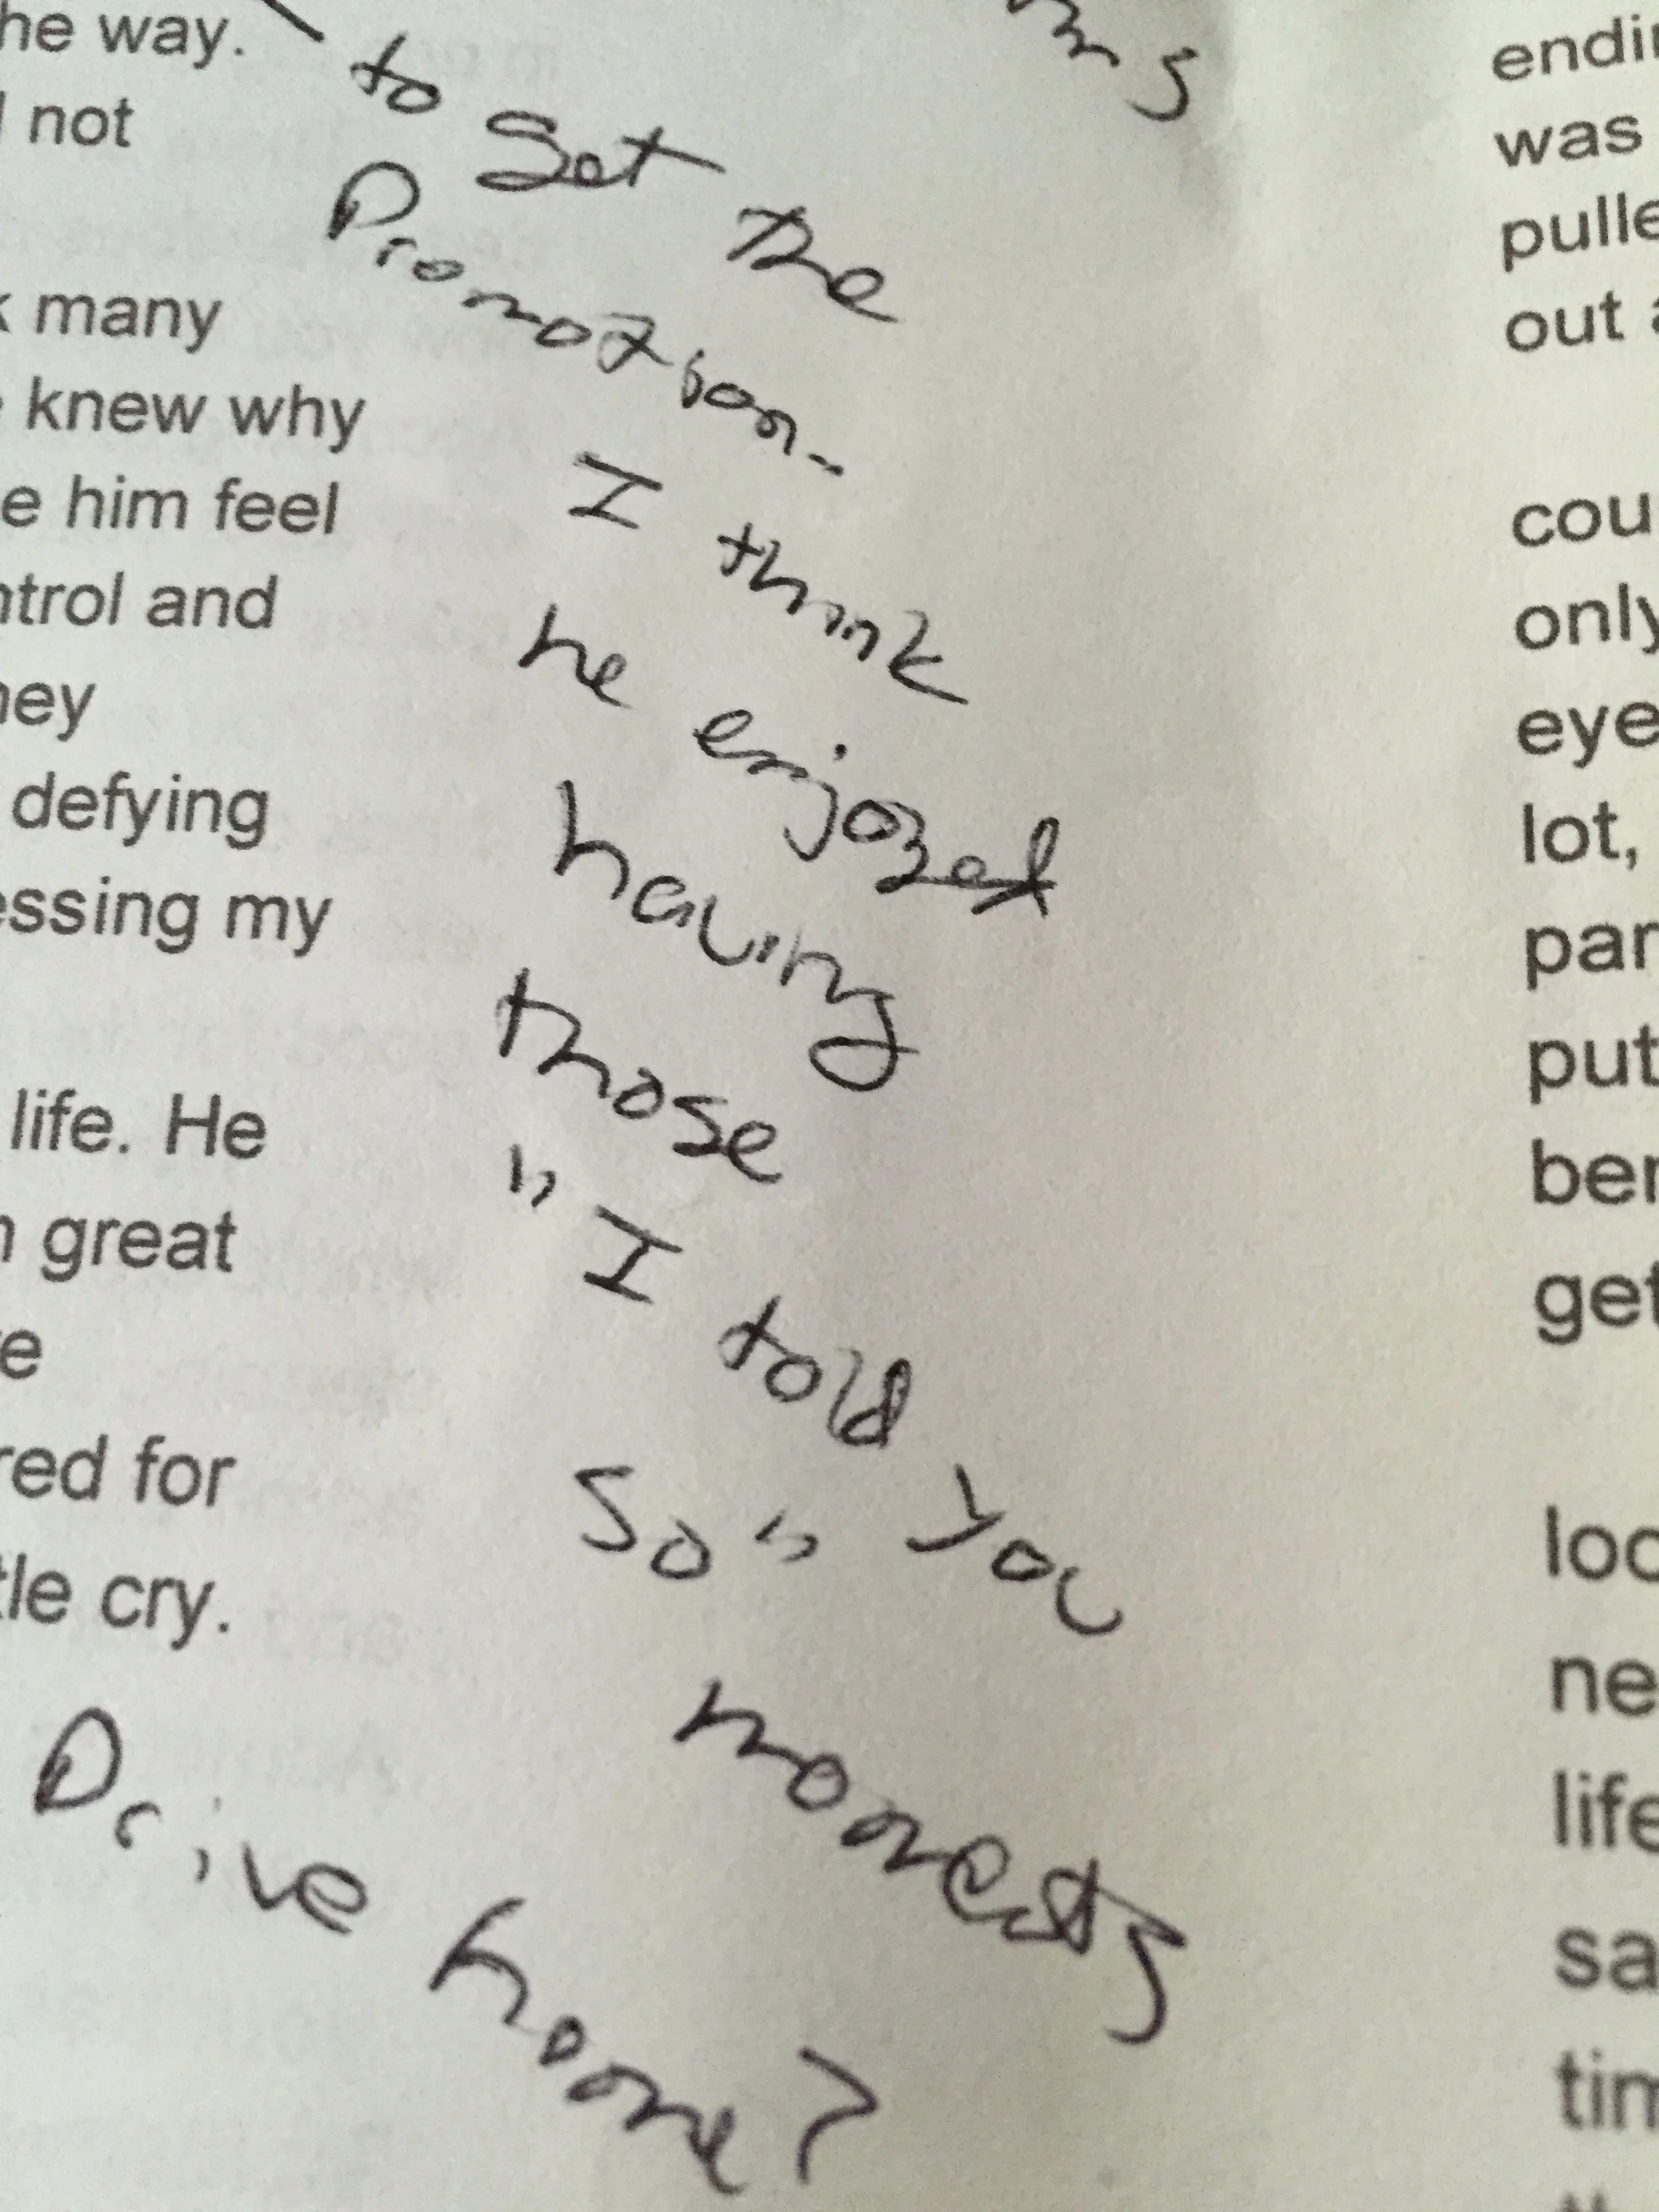 he way.
not
many
knew why
e him feel
ntrol and
ney
defying
essing my
life. He
great
e
red for
tle cry.
to Set the
Promotion-
I think
he enjoyed
having
those
"I told you
So"
moments
Drive home?
endin
was
pulle
out a
cou
only
eye
lot,
par
put
ber
get
loo
ne
life
sa
tim